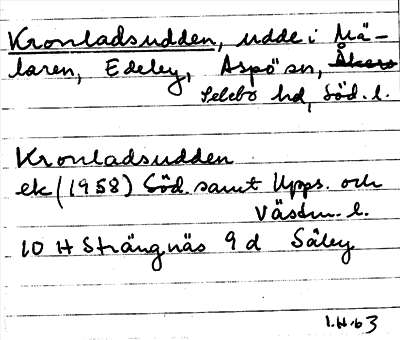 Kronladsudden, udde i Mä-
laren, Edeby, Aspö sn, Åkers
Selebo hd, Söd. l.
Kronladsudden
ek (1958) Söd. samt Upps. och
Västm. l.
10 H Strängnäs 9 d Säby
1.H.63